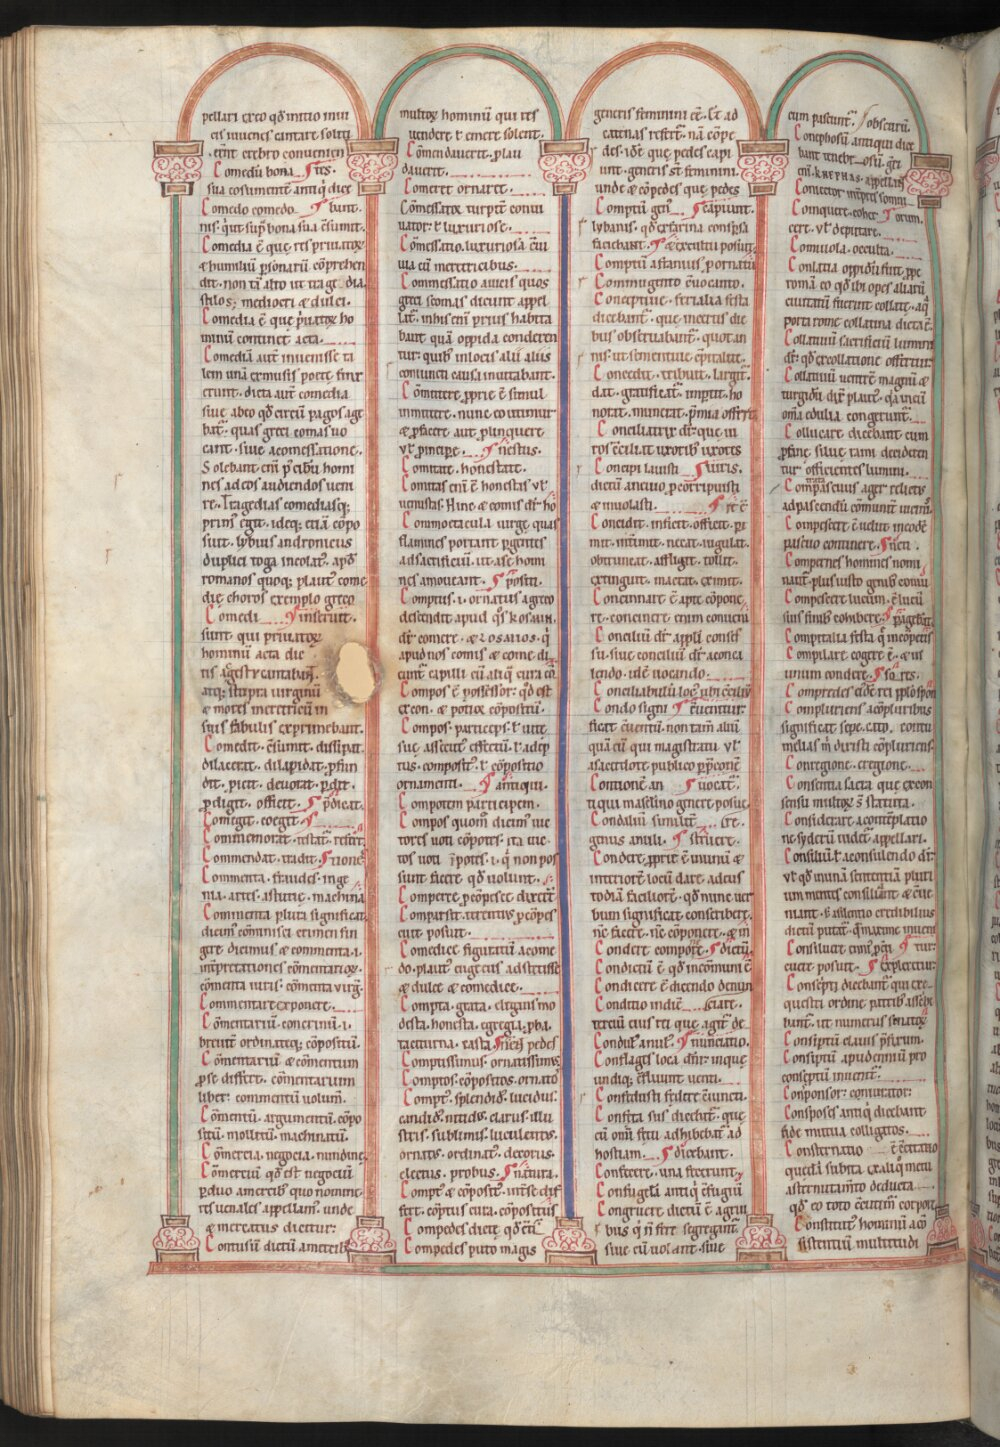 pellari creo qđ initio inui
cis iuuenes cantare soliti
erant crebro conuenien
Comedū bona tes.
sua cosumente antiq̄ dice
Comedo comedo. bunt.
nis. q̄ ut sup̄ bona sua c̄sumit.
Comedia ē que res priuatoꝝ
& humiliū p̄sonarū cōprehen
dit. non tā alto ut trag&dia
stilo; mediocri & dulci.
Comedia ē que p̄uatoꝝ ho
minū continet acta.
Comediā aut̄ inuenisse ta
lem unā ex musis poetę finx
erunt. dicta aut̄ comedia
siue ab eo qđ circū pagos age
bat̄. quas greci comas uo
cant. siue a comessatione.
Solebant enī p̄ cibū homi
nes ad eos audiendos ueni
re. Tragedias comediasq;
primꝰ egit. ideq; etiā cōpo
suit. lybius andronicus
duplici toga incolat̄. apđ
romanos quoq; plautꝰ come
dię choros exemplo greco
Comedi inseruit.
sunt qui priuatoꝝ
hominū acta dic
tis aut gestꝰ cantabant
atq; stupra uirginū
& mores meretricū in
suis fabulis exprimebant.
Comedit. c̄sumit. dissipat.
dilacerat. dilapidat. p̄fun
dit. p̄icit. deuorat. p̄dit.
p̄digit. officit. p̄dicat.
Comigit. coegit.
Commemorat. testat̄. restit
Commendat. tradit. tiones
Commenta. fraudes. inge
nia. artes. astutię. machina
Commenta pluta significat
dicim̄ cōminisci et rimen fin
gere dicimus & commenta. i.
inp̄retationes cōmentatoꝝ.
cōmenta iuris. cōmenta uirḡ.
Commentare. exponere.
Cōmentariū. concinnū. i.
breuit̄ ordinateq; cōpositū.
Cōmentariū & cōmentum
p̄se differt. cōmentarium
liber. commentū uolum̄.
Cōmentū. argumentū. cōpo
sitū. mollitū. machinatū.
Cōmercia. negocia. nundine
Cōmerciū qđ est negociū
p̄duo a mercibꝰ quo nomine
res uenales appellam̄. unde
& mercatus dicitur.
Contusiū dictū a mercib
multoꝝ hominū qui res
uendere ł emere solent.
Cōmendauerit. p̄lau
dauerit.
Comeret ornaret.
Cōmessatoꝝ turpit̄ conui
uatoꝝ ł luxuriose.
Cōmessatio. luxuriosa c̄ui
uia cū meretricibus.
Commessatio a uicis quos
greci comas dicunt appel
lat̄. in his enī prius habita
bant quā oppida conderen
tur. quibꝰ in locis alii aliis
coniuncti causa inuitabant.
Cōmittere. p̄prie ē simul
inmittere. nunc ponimus
& p̄ facere aut p̄linquere
vł p̄incipe. nestus.
Comitate. honestate.
Comitas enī ē honestas vł
uenustas. Hinc & comis dr̄ ho
Commoetacula uirge quas
flamines portant p̄gentes
ad sacrificiū. ut a se homi
nes amoueant. positi.
Comptus. i. ornatus a greco
descendit. apud q̄s kosmin.
dr̄ comere. & cosmos. q̄
apud nos comis & come di
cunt̄ capilli cū aliq̄ cura cō
Compos ē possessor: qđ est
creon. & potioꝝ cōpositū.
Compos. particeps. ł uite
sue assecutꝰ effectū. ł adep
tus. compositꝰ. ł cōpositio
ornamenti. antiqui.
Compotem participem.
Compos quom̄ dicim̄ uic
tores uoti cōpotes. ita uic
tos uoti īpotes. i. q̄ non pos
sunt facere qđ uolunt.
Comperce p̄compesce dixert̄
Comparsit. terentiꝰ p̄cōpes
cuit posuit.
Comedice figuratū a come
do. plautꝰ euge eus adsittisse
& dulce & comedice.
Compta. grata. elegans mo
desta. honesta. egregia. p̄ba.
taciturna. casta. pedes
Comptissimus. ornatissimꝰ
Comptos. cōpositos. ornatos
Comptꝰ. splendidꝰ. lucidus.
candidꝰ. nitidꝰ. clarus. illu
stris. sublimis. luculentꝰ.
ornatꝰ. ordinatꝰ. decorus.
electus. probus. natura.
Comptꝰ & cōpositꝰ. int̄se dif
fert. cōptus cura. cōpositus
Compedes dicte qđ cōti
Compedes puto magis
generis feminini eē. Et ad
catenas restrī. nā cōpe
des. id ē que pedes capi
unt. generis st̄ feminini.
unde & cōpedes quę pedes
Comptū gen̄ capiunt.
lybanis. qđ ex farina consp̄sa
faciebant. & excultu posuit.
Comptū afranius p̄ornatū
Commugento c̄uocanto.
Conceptiue. ferialia festa
dicebant̄. quę in certis die
bus obseruabant̄. quotan
nis. ut sementiue c̄pitalit̄.
Concedit. tribuit. largit̄.
dat. gratificat̄. impit̄. ho
norat. munerat. p̄mia offert.
Conciliatrix dr̄. que ui
ros c̄ciliat uxoribꝰ ł uxores
Concipi lauisti uiris.
dictū an cuio p̄ corripuisti
& inuolasti. it ē
Concidit. inficit. officit. pi
mit. int̄imit. necat. iugulat.
obtruncat. affligit. tollit.
extinguit. mactat. eximit.
Concinnare ē apte cōpone
re. concinere enim conueni
Conciliū dr̄. appłł. consēs
su. siue conciliū dr̄ a conca
lendo. id ē uocando.
Conciliabulū loc̄ ubi c̄ciliū
Condo signi c̄ueniitur.
ficat c̄uentū. non tam̄ aliū
quā cū qui magistratu vł
a sacerdote publico p̄p̄conē
Contione an uocat̄.
tiqui maselino genere posue
Condaliū similit̄ re.
genus anuli. struere.
Condere. p̄prie ē in unū &
interiorē locū dare. ad cus
todiā faciliorē. qđ nunc uer
bum significat conscribere.
nc̄ facere. nc̄ cōponere. & in
Condere. compoñe. dictū.
Condictū ē qđ incōmuni ē
Condicere ē dicendo denun
Conditio indiē ciare.
terciū eius rei que agit̄ de
Condulꝰ anulꝰ. nunciatio.
Conflages loca dn̄r. in quę
undiq; c̄fluunt uenti.
Confedusti federe c̄iuncti.
Confeta sus dicebat̄. quę
cū om̄i fetu adhibebat̄ ad
hostiam. dicebant.
Confecere. una fecerunt.
Confugela antiq̄ c̄fugiū
Congruere dictū ē a grui
bus q̄ ñ se segregant̄.
siue cū uolant. siue
cum pascunt̄. obscurū.
Conephosū antiqui dice
bant tenebrosū. gr̄i
enī. KNEPHAS. appellāt
Coniector inp̄res somni
Conquere. coher torum.
cere. vł deputare.
Comuola. occulta.
Conlatia oppidū fuit. p̄pe
romā. eo qđ ibi opes aliarū
ciuitatū fuerint collate. a q̄
porta rome collatina dicta ē.
Collatiuū sacrificiū lumini
dr̄. qđ ex collatione offertur
Collatiuū uentrē magnū &
turgidū dix̄ plautꝰ. q̄a in eū
om̄ia edulia congerunt̄.
Collucare dicebant cum
p̄fane siluę rami deciderēn
tur officientes lumini.
Compascuus ager relictꝰ
ad pascendū cōmunit̄ uicinꝰ
Compescere ē uelut in eodē
pascuo continere. ti.
Compernes homines nomi
nant̄. plus iusto genibꝰ coniū
Compescere lucum. ē lucū
suis finibꝰ cohibere. p̄agebāt̄
Compitalia festa q̄ in cōpetis
Compilare. cogere ē. & in
unum condere. res.
Compredes eidē rei p̄plo sponsores
Compluriens. a cōpluribus
significat sepe. cato. contu
melias m̄ dixisti cōpluriens
Conregione. eregione.
Consentia sacra que ex con
sensu multoꝝ s̄ statuta.
Considerare a contēplatio
ne syderū uidet̄ appellari.
Consiliū ł a consulendo dr̄.
vł qđ in unā sententiā pluri
um mentes consiliant & c̄ue
niant. ł a silentio credibilius
dictū putat̄. q̄ maxime inuenit
Consiluere. enniꝰ p̄cti tur.
cuere posuit. expleretur.
Consc̄ipti dicebant̄ qui exe
questri ordine patribꝰ ascibe
bant̄. ut numerus senatoꝝ
Consiptū clauis p̄fixum.
Consiptū apud enniū pro
conseptū inuenit̄.
Conspōnsor: coniurator:
Consposes antiq̄ dicebant
fide mutua colligatos.
Consternatio ē c̄citatio
quedā subita ex aliq̄ metu
a sternutam̄to deducta.
qđ eo toto c̄cutim̄ corpore
Constitutꝰ hominū a cō
sistentiū multitudi